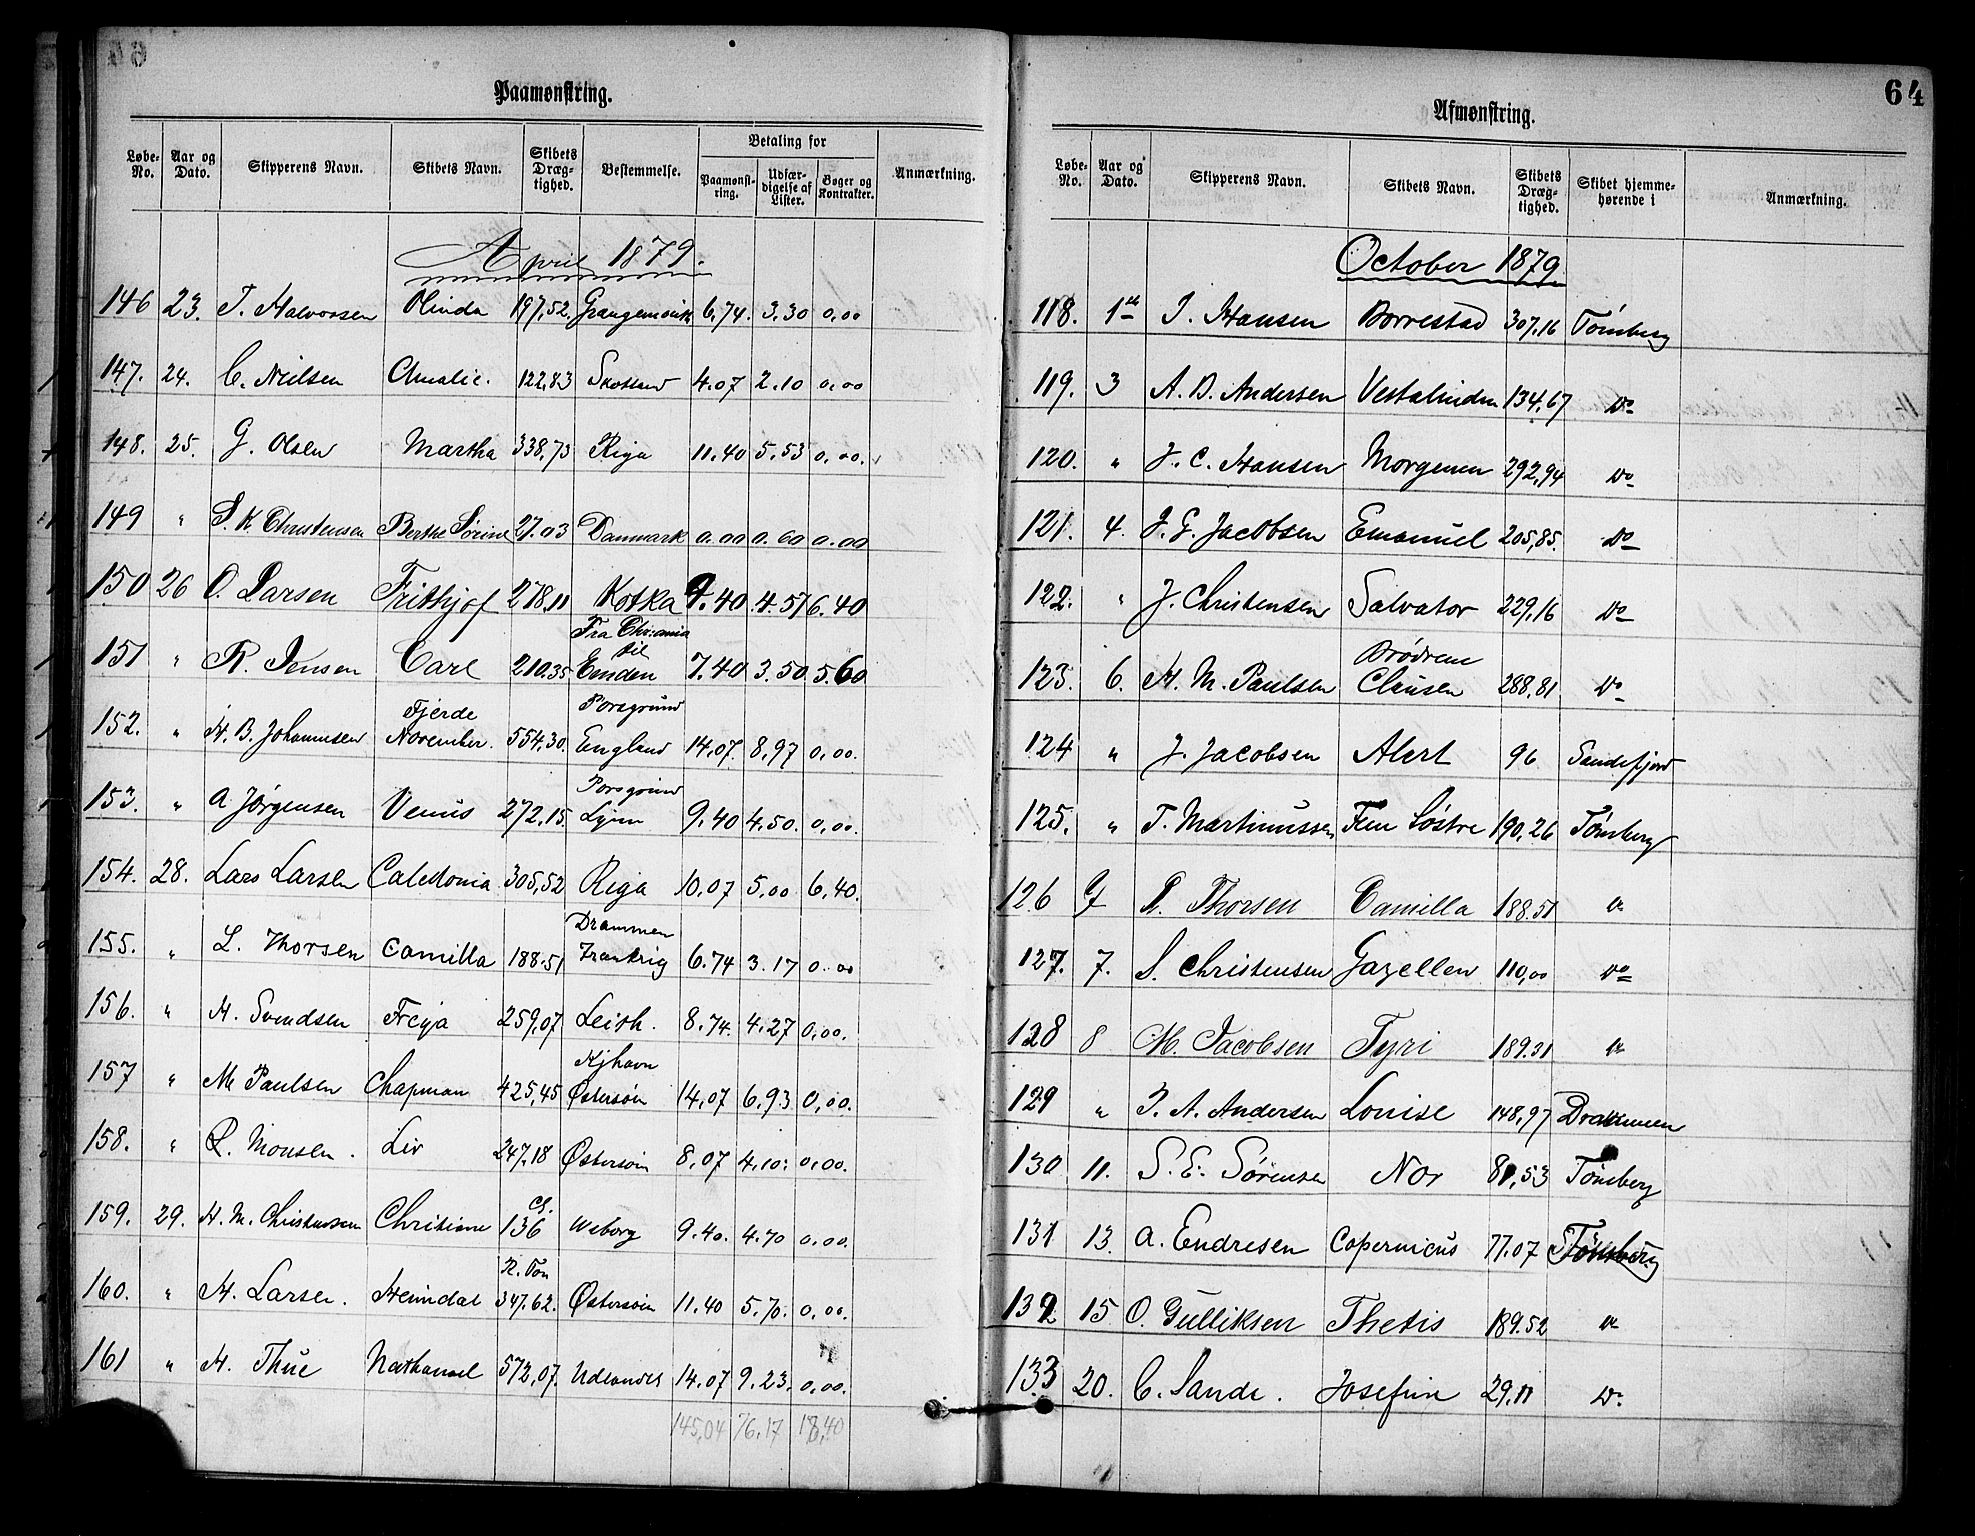 Paamønstring.
Løbe-No. Aar og Dato. Skipperens Navn. Skibets Navn. Skibets Dræg-tighed. Bestemmelse. Betaling for Paamønst-ring. Udfær-digelse af Lister. Bøger og Kontrakter. Anmærkning.
April 1879.
146 23. T. Halvorsen Olinda 197,52. Grangemouth 6.74. 3.30 0,00
147. 24. C. Nielsen Amalie. 122,83 Skotland 4.07 2.10 0,00
148. 25. G. Olsen Martha 338,73 Riga 11.40 5.53 0,00.
149 " S. K Christensen Berthe Sørine 27.03 Danmark 0.00 0.60 0.00
150 26 O. Larsen Frithjof 278,11 Kotka 9.40 4.57 6.40
Fra Chr:ania til
151 " R. Jensen Carl 210.35 Emden 7.40 3.50 5.60
Fjerde Porsgrund
152. " H. B. Johannsen November. 554.30. England 14,07. 8,97 0,00.
Porsgrund
153. " A Jørgensen Venus 272,15. Lynn 9.40 4.50. 0,00.
154. 28. Lars Larsen Caledonia 305,52 Riga 10,07 5,00 6,40.
Drammen
155. " L. Thorsen Camilla 188.51 Frankrig 6.74 3.17 0.00
156. " H. Svendsen Freya 259,07 Leith. 8,74. 4,27 0,00.
Kjhavn
157 " M Paulsen Chapman 425,45 Østersøin 14,07 6,93 0,00.
158. " R. Monsen. Liv 247.18 Østersøin 8,07 4,10. 0,00.
Cl.
159. 29. H. M. Christensen Christiane 136 Weborg 9.40. 4.70 0,00.
R. Ton
160. " H. Larsen. Heimdal 347.62. Østersøin 11.40 5.70. 0,00.
161 " H. Thue Nathanael 572,07. Udlandet 14.07 9.23. 0,00.
145,04 76.17 18,40
64
Afmønstring.
Løbe-No. Aar og Dato. Skipperens Navn. Skibets Navn. Skibets Dræg-tighed. Skibet hjemme-hørende i Anmærkning.
October 1879
118. 1ste J. Hansen Borrestad 307.16 Tønsberg
119. 3 A. B. Andersen Vestalinden 134,67 Do
120. " J. C. Hansen Morgenen 292,94 Do
121. 4. J. G. Jacobsen Emanuel 205,85. Do
122. " J. Christensen Salvator 229,16 Do
Brødrene
123. 6. H. M. Paulsen Clausen 288,81 Do
124 " J. Jacobsen Alert 96 Sandefjord
125. " T. Martinussen Fem Søstre 190,26 Tønsberg
126 7 L. Thorsen Camilla 188.51 "
127. 7. S. Christensen Gazellen 110,00 Do
128 8 M. Jacobsen Tyri 189.31 "
129 " T. A. Andersen Louise 148,97 Drammen
130 11. S. E. Sørensen Nor 81,53 Tønsberg
131 13. A. Endresen Copernicus 77.07 Tønsberg
132 15 O. Gulliksen Thetis 189.52 "
133 20. C. Sande. Josefine 29,11 Do